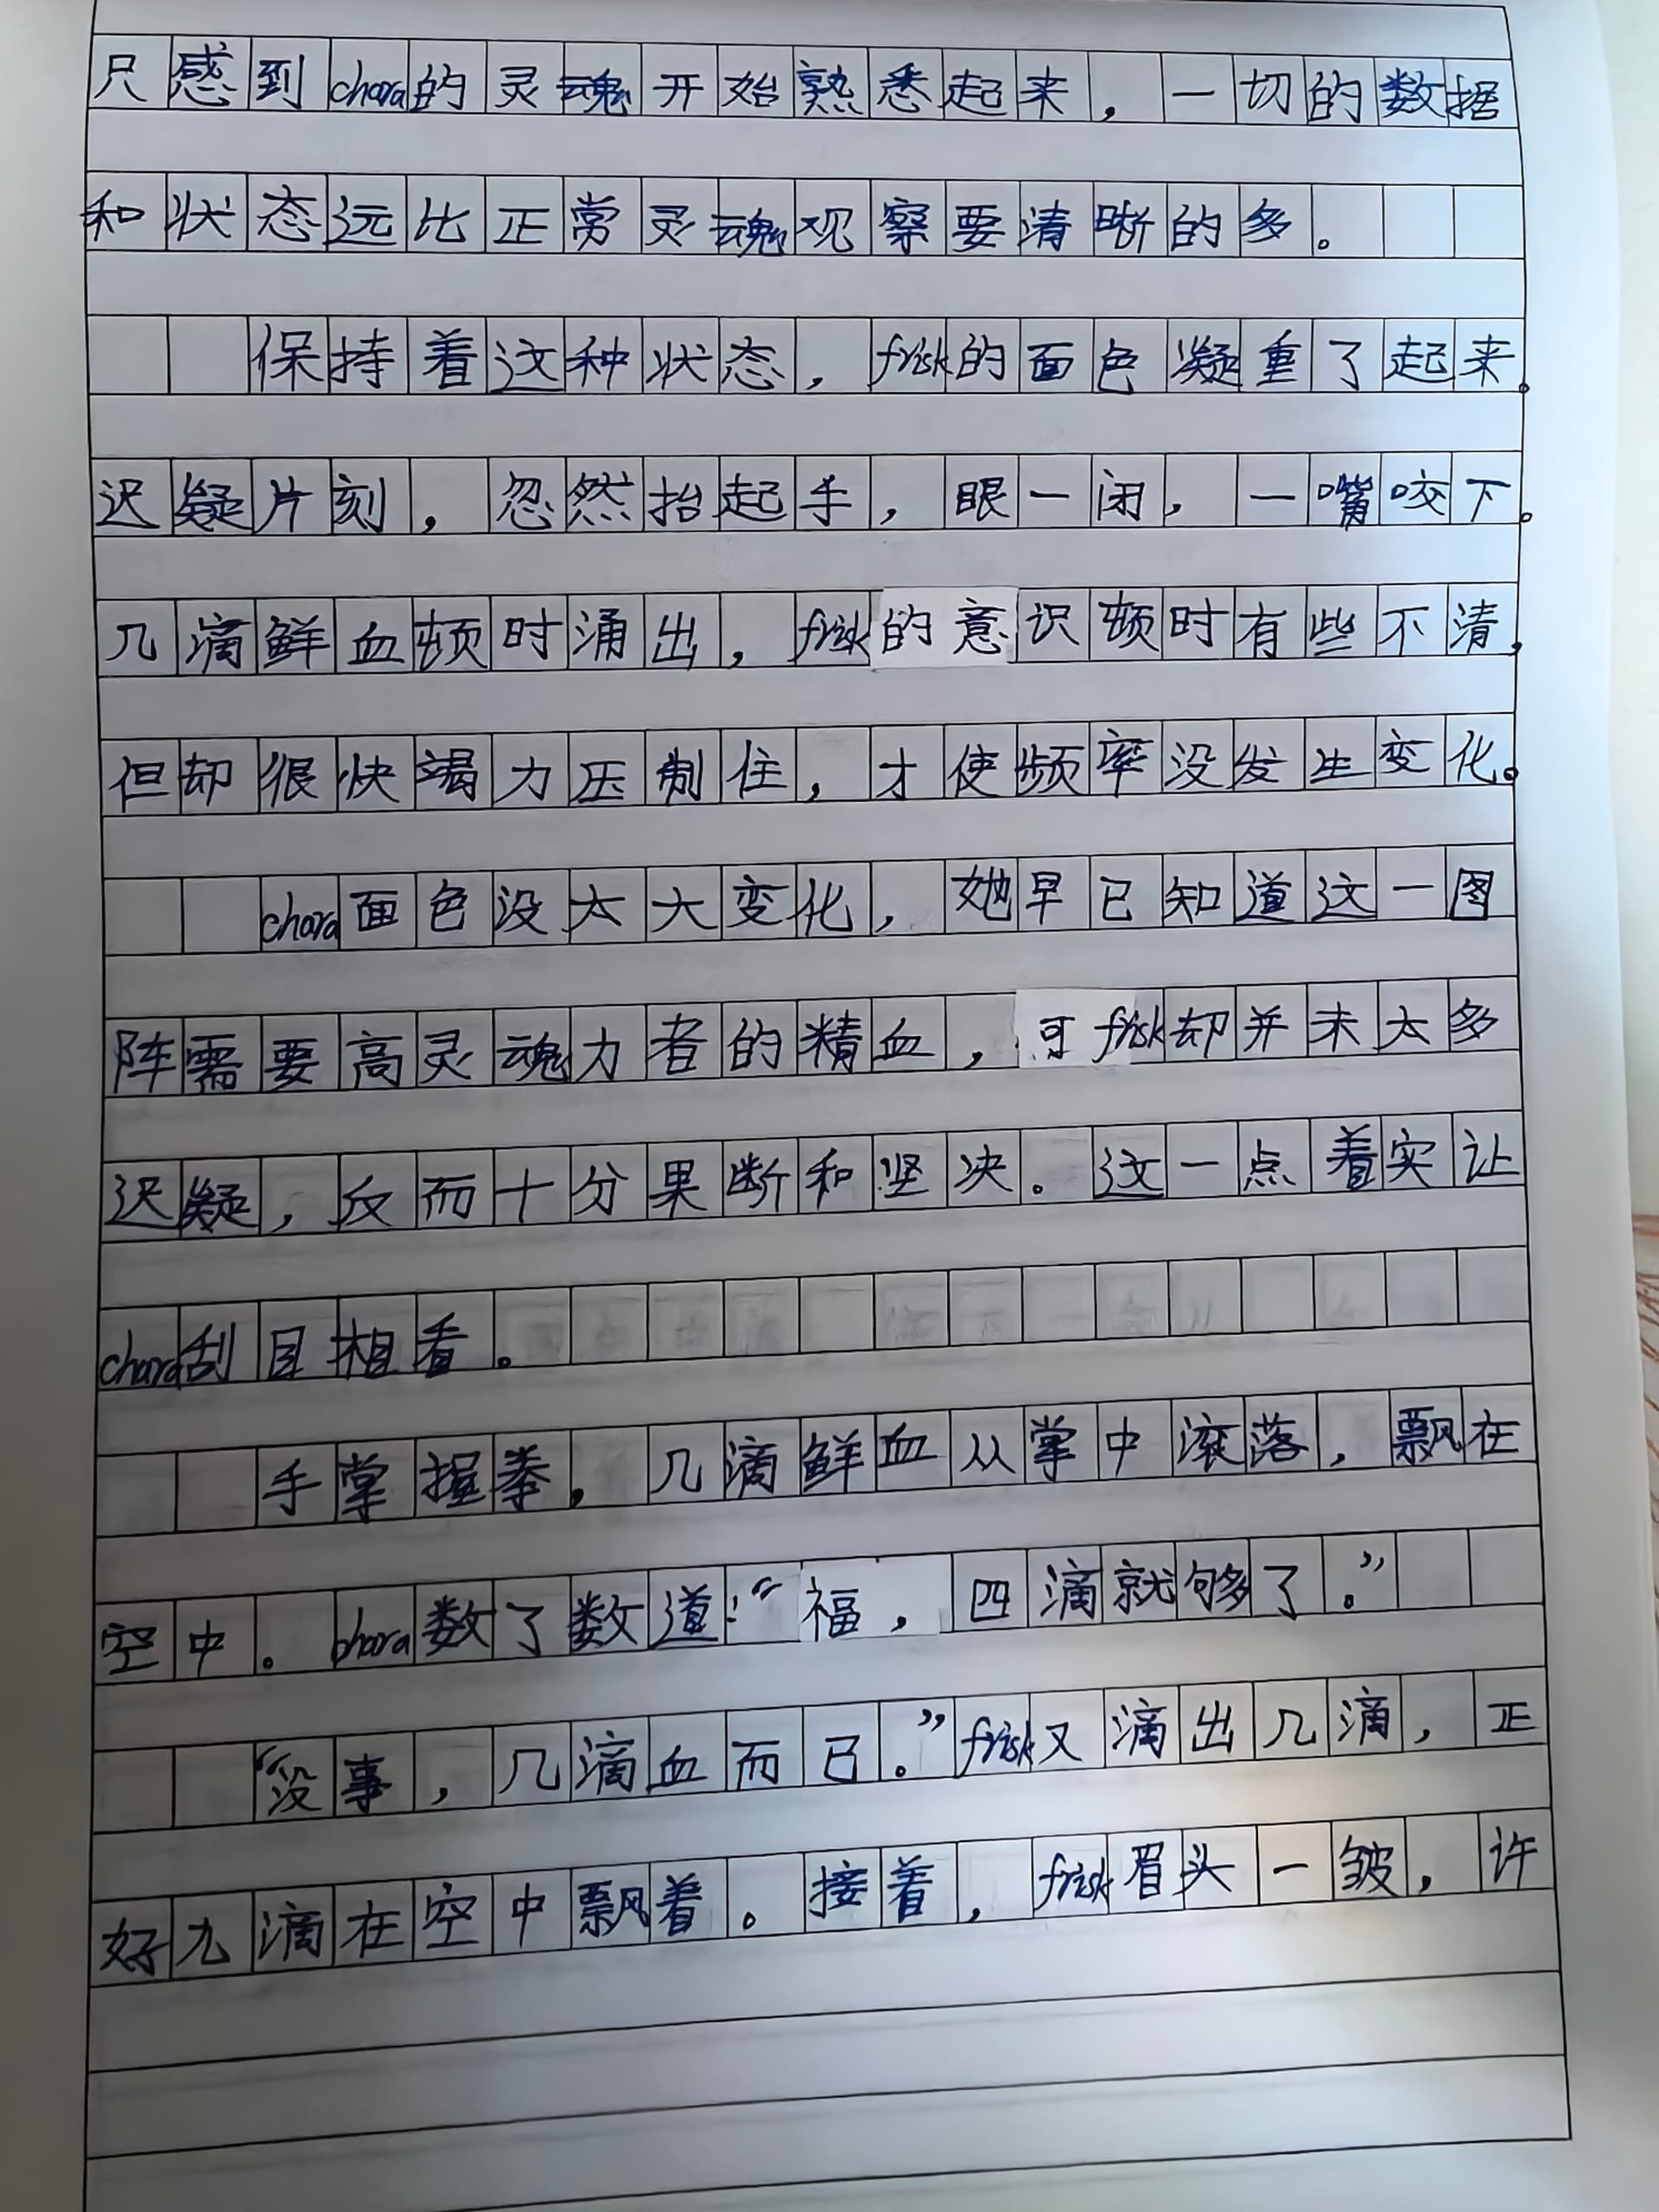 只感到chara的灵魂开始熟悉起来，一切的数据
和状态远比正常灵魂观察要清晰的多。
保持着这种状态，frisk的面色凝重了起来。
迟疑片刻，忽然抬起手，眼一闭，一嘴咬下。
几滴鲜血顿时涌出，frisk的意识顿时有些不清，
但却很快竭力压制住，才使频率没发生变化。
chara面色没太大变化，她早已知道这一图
阵需要高灵魂力者的精血，可frisk却并未太多
迟疑，反而十分果断和坚决。这一点着实让
chara刮目相看。
手掌握拳，几滴鲜血从掌中滚落，飘在
空中。chara数了数道：“福，四滴就够了。”
“没事，几滴血而已。”frisk又滴出几滴，正
好九滴在空中飘着。接着，frisk眉头一皱，许